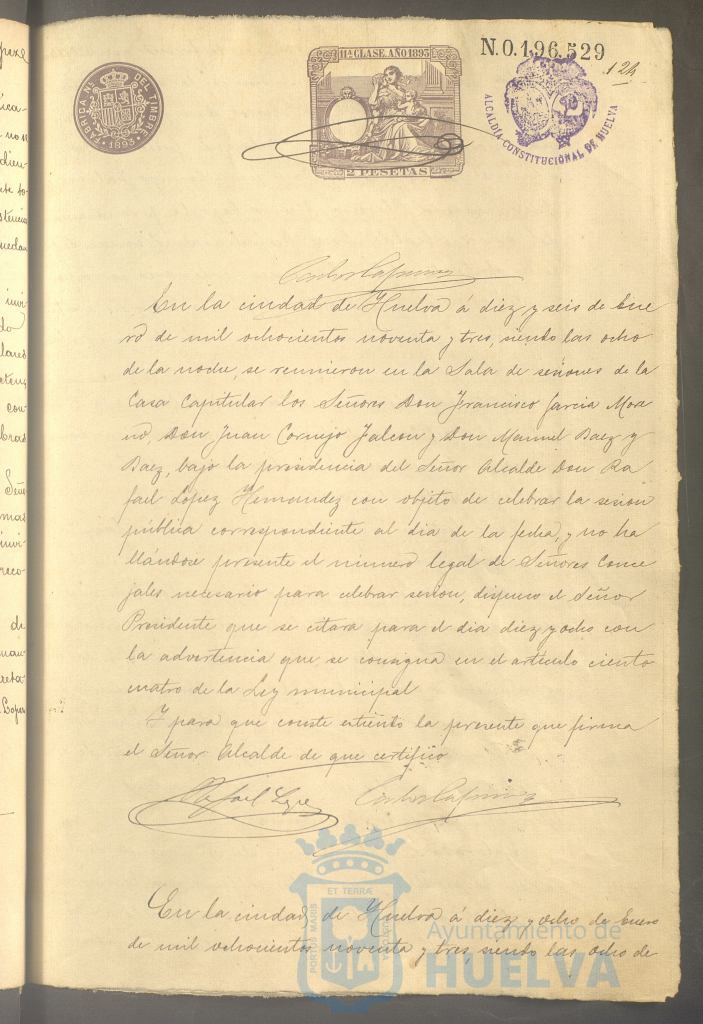 FÁBRICA NAL. DEL TIMBRE
1893
11ª CLASE. AÑO 1893
2 PESETAS
N.0.196.529
124
ALCALDIA CONSTITUCIONAL DE HUELVA
En la ciudad de Huelva á diez y seis de Ene
ro de mil ochocientos noventa y tres, siendo las ocho
de la noche, se reunieron en la Sala de señores de la
Casa Capitular los Señores Don Francisco Garcia More
no, Don Juan Cornejo Falcon y Don Manuel Baez y
Baez, bajo la presidencia del Señor Alcalde Don Ra
fael Lopez Hernandez con objeto de celebrar la sesion
pública correspondiente al dia de la fecha, y no ha
llándose presente el número legal de Señores Conce
jales necesario para celebrar sesion, dispuso el Señor
Presidente que se citara para el dia diez y ocho con
la advertencia que se consigna en el artículo ciento
cuatro de la Ley municipal
Y para que conste estiendo la presente que firma
el Señor Alcalde de que certifico
Rafael Lopez
En la ciudad de Huelva á diez y ocho de Enero
de mil ochocientos noventa y tres, siendo las ocho de
PORTUS MARIS ET TERRÆ CUSTODIA
Ayuntamiento de
HUELVA